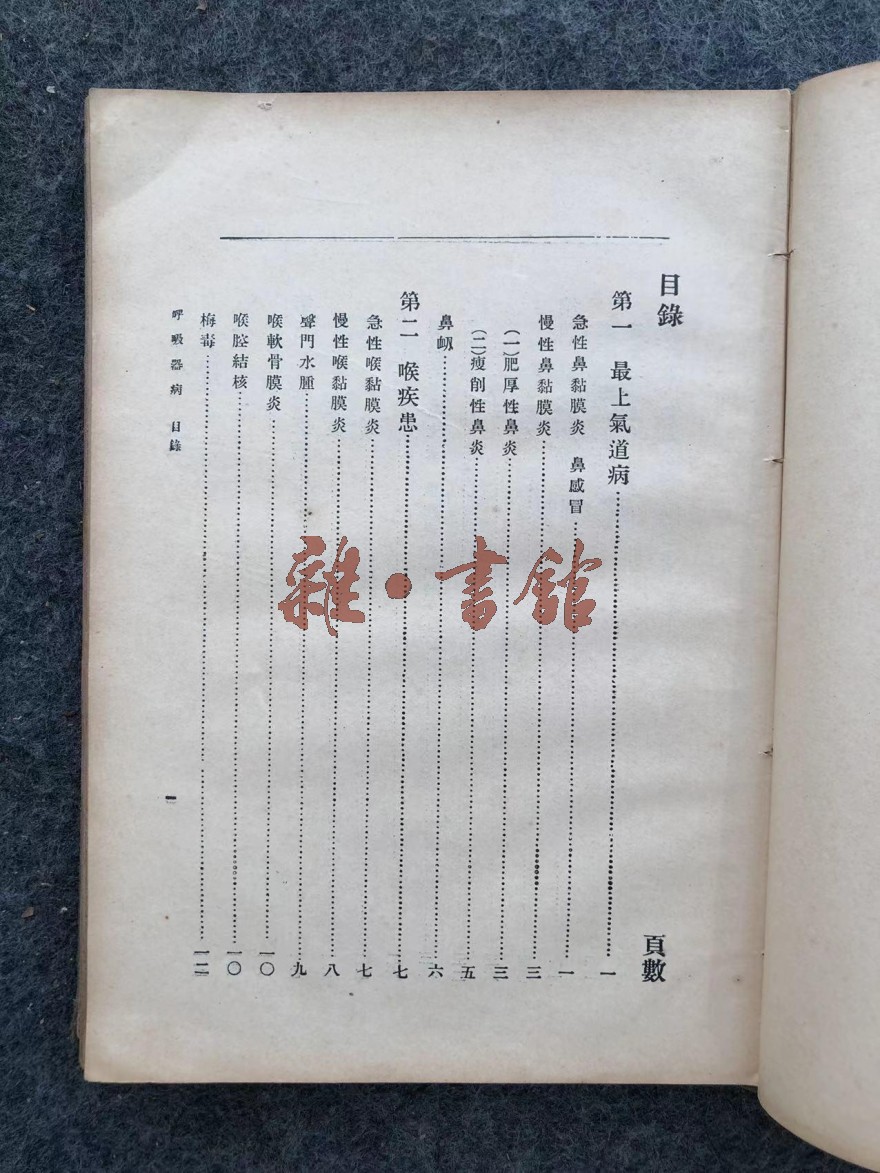 目錄　頁數
第一　最上氣道病……一
急性鼻黏膜炎　鼻感冒……一
慢性鼻黏膜炎……三
(一)肥厚性鼻炎……三
(二)瘦削性鼻炎……五
鼻衂……六
第二　喉疾患……七
急性喉黏膜炎……七
慢性喉黏膜炎……八
聲門水腫……九
喉軟骨膜炎……一〇
喉腔結核……一〇
梅毒……一二
呼吸器病　目錄　一
雜·書館